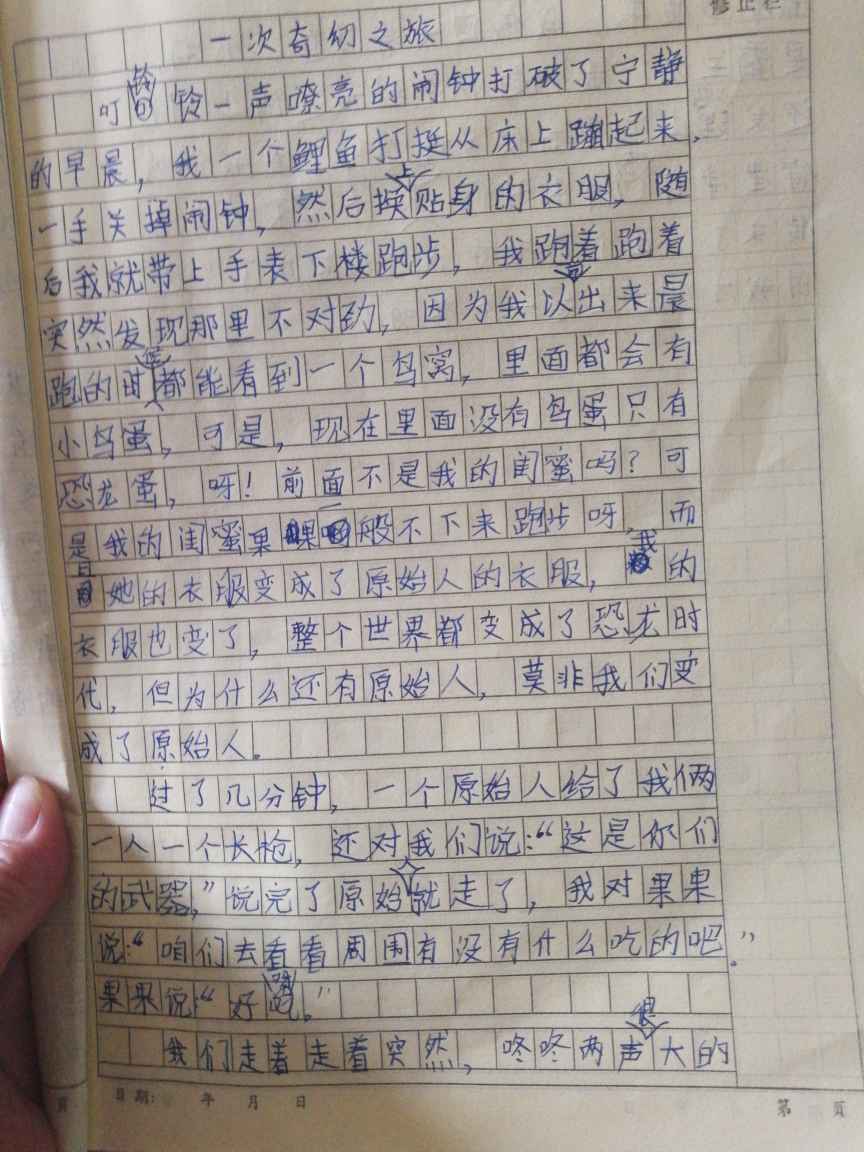 修正栏
一次奇幻之旅
叮铃铃一声嘹亮的闹钟打破了宁静
的早晨，我一个鲤鱼打挺从床上蹦起来，
一手关掉闹钟，然后换上贴身的衣服，随
后我就带上手表下楼跑步，我跑着跑着
突然发现那里不对劲，因为我以前出来晨
跑的时候都能看到一个鸟窝，里面都会有
小鸟蛋，可是，现在里面没有鸟蛋只有
恐龙蛋，呀！前面不是我的闺蜜吗？可
是我的闺蜜果果一般不下来跑步呀，而
且她的衣服变成了原始人的衣服，我的
衣服也变了，整个世界都变成了恐龙时
代，但为什么还有原始人，莫非我们变
成了原始人。
过了几分钟，一个原始人给了我俩
一人一个长枪，还对我们说：“这是你们
的武器，”说完了原始人就走了，我对果果
说：“咱们去看看周围有没有什么吃的吧。”
果果说“好。”
我们走着走着突然，咚咚两声很大的
页 日期： 年 月 日 第 页